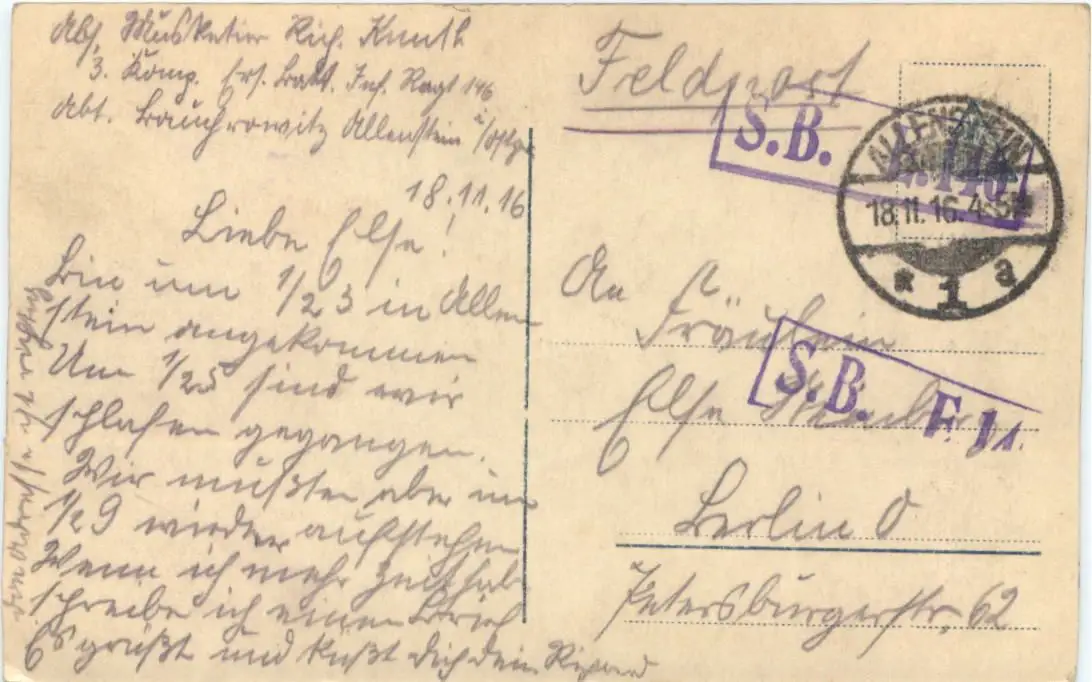 Abs. Musketier Rich. Knuth
3. Komp. Ers. Batt. Inf. Ragt 146
Abt. Allenstein i/Ostpr.
18.11.16
Liebe Else!
Bin um 1/2 3 in Allen
stein angekommen
Um 1/2 5 sind wir
schlafen gegangen.
Wir mußten aber um
1/2 9 wieder aufstehen
Wenn ich mehr Zeit hab
schreibe ich einen Brief
Es grüßt und küßt Dich dein Richard
Feldpost
S.B.
ALLENSTEIN
18.11.16. 4-5N
* 1 a
An
Fräulein
Else
S.B.
Berlin O
Petersburgerstr. 62